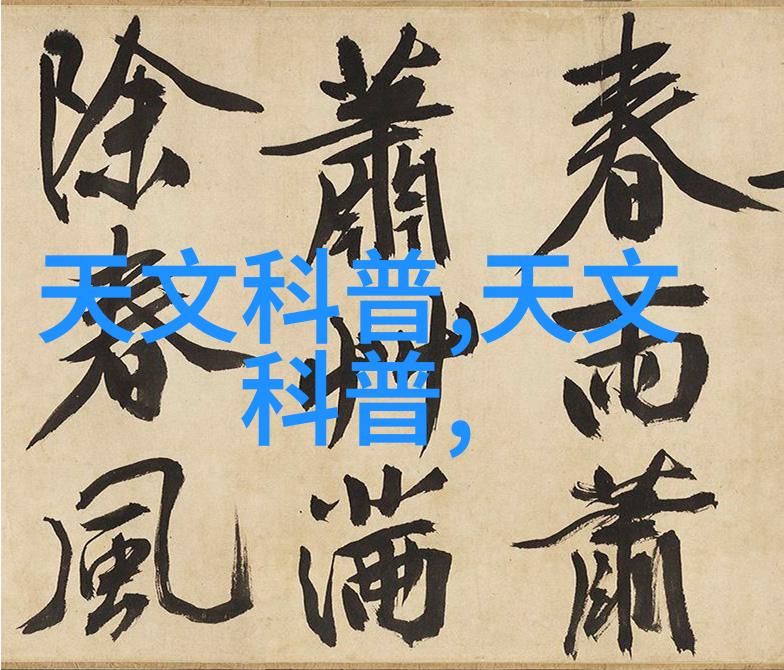 春雨蕭
蕭艸滿
除春風
天文科普,天文
科普,